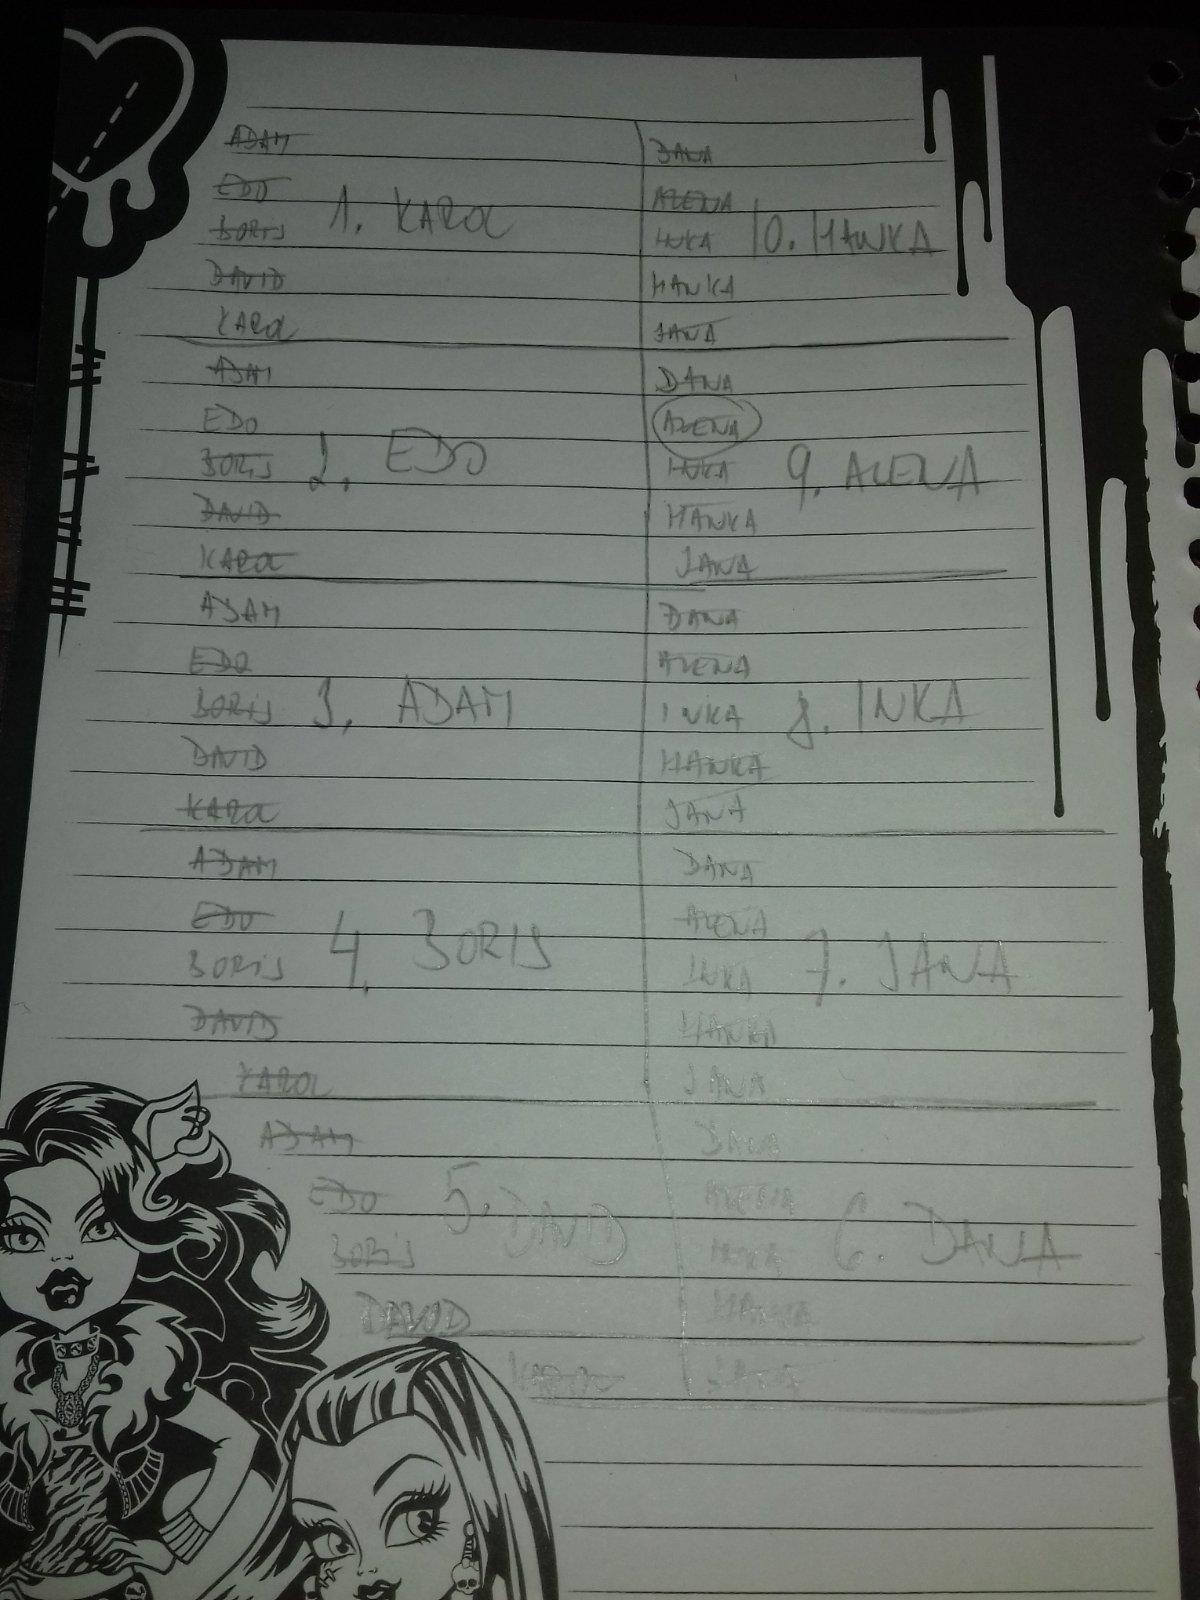 ADAM
EDO
BORIS 1. KAROL
DAVID
KAROL
ADAM
EDO
BORIS 2. EDO
DAVID
KAROL
ADAM
EDO
BORIS 3. ADAM
DAVID
KAROL
ADAM
EDO
BORIS 4. BORIS
DAVID
KAROL
ADAM
EDO 5. DAVID
BORIS
DAVID
KAROL
DANA
ALENA
INKA 10. HANKA
HANKA
JANA
DANA
ALENA
INKA 9. ALENA
HANKA
JANA
DANA
ALENA
INKA 8. INKA
HANKA
JANA
DANA
ALENA
INKA 7. JANA
HANKA
JANA
DANA
ALENA
INKA 6. DANA
HANKA
JANA